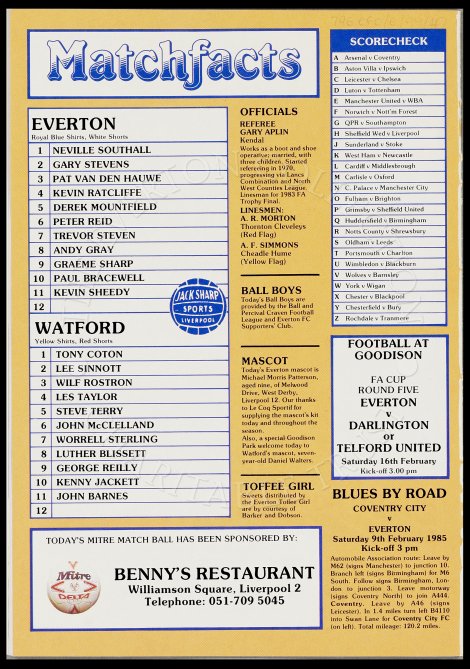 Matchfacts
EVERTON
Royal Blue Shirts, White Shorts
1 NEVILLE SOUTHALL
2 GARY STEVENS
3 PAT VAN DEN HAUWE
4 KEVIN RATCLIFFE
5 DEREK MOUNTFIELD
6 PETER REID
7 TREVOR STEVEN
8 ANDY GRAY
9 GRAEME SHARP
10 PAUL BRACEWELL
11 KEVIN SHEEDY
12
JACK SHARP
SPORTS
LIVERPOOL
WATFORD
Yellow Shirts, Red Shorts
1 TONY COTON
2 LEE SINNOTT
3 WILF ROSTRON
4 LES TAYLOR
5 STEVE TERRY
6 JOHN McCLELLAND
7 WORRELL STERLING
8 LUTHER BLISSETT
9 GEORGE REILLY
10 KENNY JACKETT
11 JOHN BARNES
12
OFFICIALS
REFEREE
GARY APLIN
Kendal
Works as a boot and shoe
operative; married, with
three children. Started
refereeing in 1970,
progressing via Lancs
Combination and North
West Counties League.
Linesman for 1983 FA
Trophy Final.
LINESMEN:
A. R. MORTON
Thornton Cleveleys
(Red Flag)
A. F. SIMMONS
Cheadle Hume
(Yellow Flag)
BALL BOYS
Today's Ball Boys are
provided by the Ball and
Percival Craven Football
League and Everton FC
Supporters' Club.
MASCOT
Today's Everton mascot is
Michael Morris Patterson,
aged nine, of Melwood
Drive, West Derby,
Liverpool 12. Our thanks
to Le Coq Sportif for
supplying the mascot's kit
today and throughout the
season.
Also, a special Goodison
Park welcome today to
Watford's mascot, seven-
year-old Daniel Walters.
TOFFEE GIRL
Sweets distributed by
the Everton Toffee Girl
are by courtesy of
Barker and Dobson.
SCORECHECK
A Arsenal v Coventry
B Aston Villa v Ipswich
C Leicester v Chelsea
D Luton v Tottenham
E Manchester United v WBA
F Norwich v Nott'm Forest
G QPR v Southampton
H Sheffield Wed v Liverpool
J Sunderland v Stoke
K West Ham v Newcastle
L Cardiff v Middlesbrough
M Carlisle v Oxford
N C. Palace v Manchester City
O Fulham v Brighton
P Grimsby v Sheffield United
Q Huddersfield v Birmingham
R Notts County v Shrewsbury
S Oldham v Leeds
T Portsmouth v Charlton
U Wimbledon v Blackburn
V Wolves v Barnsley
W York v Wigan
X Chester v Blackpool
Y Chesterfield v Bury
Z Rochdale v Tranmere
FOOTBALL AT
GOODISON
FA CUP
ROUND FIVE
EVERTON
v
DARLINGTON
or
TELFORD UNITED
Saturday 16th February
Kick-off 3.00 pm
BLUES BY ROAD
COVENTRY CITY
v
EVERTON
Saturday 9th February 1985
Kick-off 3 pm
Automobile Association route: Leave by
M62 (signs Manchester) to junction 10.
Branch left (signs Birmingham) for M6
South. Follow signs Birmingham, Lon-
don to junction 3. Leave motorway
(signs Coventry North) to join A444.
Coventry. Leave by A46 (signs
Leicester). In 1.4 miles turn left B4110
into Swan Lane for Coventry City FC
(on left). Total mileage: 120.2 miles.
TODAY'S MITRE MATCH BALL HAS BEEN SPONSORED BY:
Mitre
DELTA
BENNY'S RESTAURANT
Williamson Square, Liverpool 2
Telephone: 051-709 5045